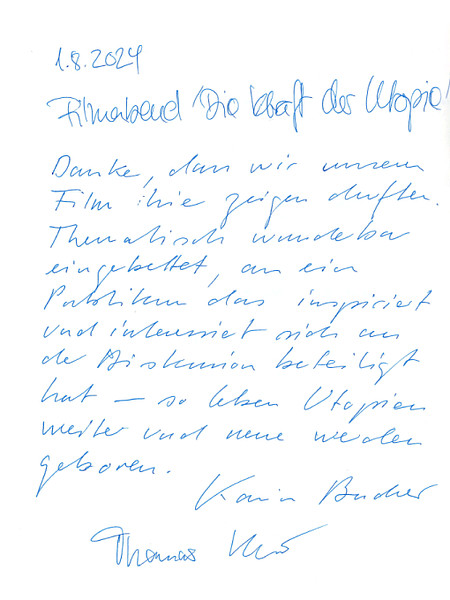 1.8.2024
Filmabend 'Die Kraft der Utopie'
Danke, dass wir unseren
Film hie zeigen durften.
Thematisch wunderbar
eingebettet, an ein
Publikum das inspiriert
und interessiert sich an
der Diskussion beteiligt
hat – so leben Utopien
weiter und neue werden
geboren.
Karin Bucher
Thomas